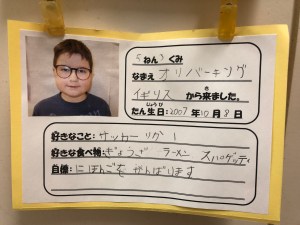 5 ねん 1 くみ
なまえ オリバーキング
イギリス から来ました。
たん生日：2007 年 10 月 8 日
好きなこと：サッカー
好きな食べ物：ぎょうざ ラーメン スパゲッティ
自慢：にほんごをがんばります